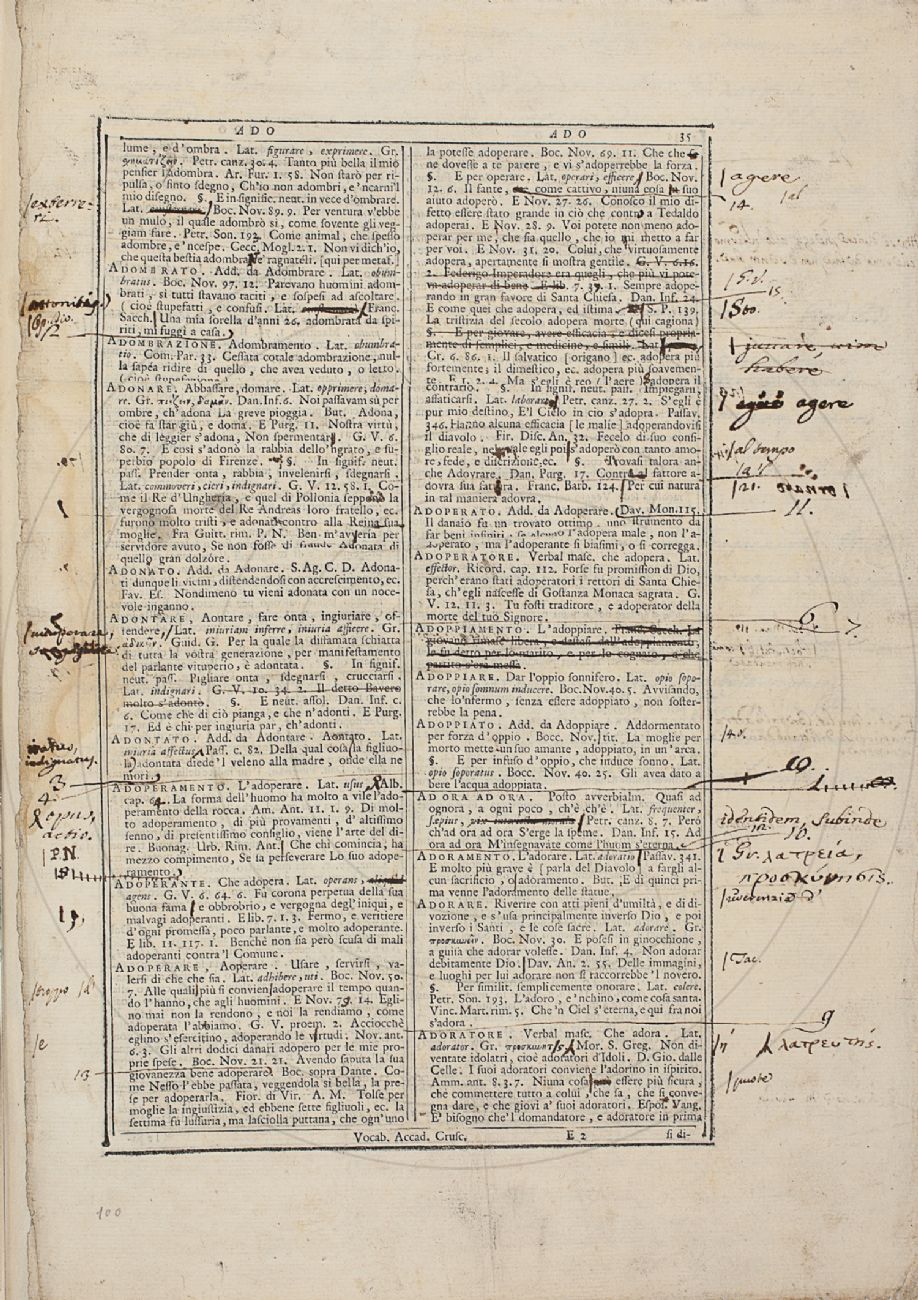 ADO
ADO 35
lume, e d'ombra. Lat. figurare, exprimere. Gr.
Petr. canz. 30. 4. Tanto più bella il mio
pensier l'adombra. Ar. Fur. 1. 58. Non starò per ri-
pulsa, o finto sdegno, Ch'io non adombri, e 'ncarni'l
mio disegno. §. E in signific. neut. in vece d'ombrare.
Lat. Boc. Nov. 89. 9. Per ventura v'ebbe
un mulo, il quale adombrò sì, come sovente gli veg-
giam fare. Petr. Son. 192. Come animal, che spesso
adombre, e 'ncespe. Cecc. Mogl. 2. 1. Non vi dich'io,
che questa bestia adombra ne' ragnateli. [qui per metaf.]
ADOMBRATO. Add. da Adombrare. Lat. obum-
bratus. Boc. Nov. 97. 12. Parevano huomini adom-
brati, sì tutti stavano taciti, e sospesi ad ascoltare.
(cioè stupefatti, e confusi. Lat. Franc.
Sacch. Una mia sorella d'anni 26. adombrata da spi-
riti, mi fuggì a casa.
ADOMBRAZIONE. Adombramento. Lat. obumbra-
tio. Com. Par. 33. Cessata cotale adombrazione, nul-
la sapea ridire di quello, che avea veduto, o letto.
(cioè stupefazione)
ADONARE. Abbassare, domare. Lat. opprimere, doma-
re. Gr. Dan. Inf. 6. Noi passavam sù per
ombre, ch'adona La greve pioggia. But. Adona,
cioè fa star giù, e doma. E Purg. 11. Nostra virtù,
che di legger s'adona, Non spermentar. G. V. 6.
80. 7. E così s'adonò la rabbia dello 'ngrato, e su-
perbio popolo di Firenze. §. In signif. neut.
pass. Prender onta, rabbia, invelenirsi, sdegnarsi.
Lat. commoveri, cieri, indignari. G. V. 12. 58. 1. Co-
me il Re d'Ungheria, e quel di Pollonia seppono la
vergognosa morte del Re Andreas loro fratello, ec.
furono molto tristi, e adonati contro alla Reina sua
moglie. Fra Guitt. rim. P. N. Ben m'averia per
servidore avuto, Se non fosse di fraude Adonata di
quello gran dolzore.
ADONATO. Add. da Adonare. S. Ag. C. D. Adona-
ti dunque li vicini, distendendosi con accrescimento, ec.
Fav. Es. Nondimeno tu vieni adonata con un noce-
vole inganno.
ADONTARE, Aontare, fare onta, ingiuriare, of-
fendere, Lat. iniuriam inferre, iniuria afficere. Gr.
Guid. G. Per la quale la diffamata schiatta
di tutta la vostra generazione, per manifestamento
del parlante vituperio, è adontata. §. In signif.
neut. pass. Pigliare onta, sdegnarsi, crucciarsi.
Lat. indignari. G. V. 10. 34. 2. Il detto Bavero
molto s'adontò. §. E neut. assol. Dan. Inf. c.
6. Come che di ciò pianga, e che n'adonti. E Purg.
17. Ed è chi per ingiuria par, ch'adonti.
ADONTATO. Add. da Adontare. Aontato. Lat.
iniuria affectus. Pass. c. 82. Della qual cosa la figliuo-
la adontata diede 'l veleno alla madre, onde ella ne
morì.
ADOPERAMENTO. L'adoperare. Lat. usus, Alb.
cap. 64. La forma dell'huomo ha molto a vile l'ado-
peramento della rocca. Am. Ant. 11. 1. 9. Di mol-
to adoperamento, di più provamenti, d'altissimo
senno, di presentissimo consiglio, viene l'arte del di-
re. Buonag. Urb. Rim. Ant. Che chi comincia, ha
mezzo compimento, Se sa perseverare Lo suo adope-
ramento.
ADOPERANTE. Che adopera. Lat. operans,
agens. G. V. 6. 64. 6. Fu corona perpetua della sua
buona fama, e obbrobrio, e vergogna degl'iniqui, e
malvagi adoperanti. E lib. 7. 1. 3. Fermo, e veritiere
d'ogni promessa, poco parlante, e molto adoperante.
E lib. 11. 117. 1. Benchè non sia però scusa di mali
adoperanti contra 'l Comune.
ADOPERARE, Aoperare. Usare, servirsi, va-
lersi di che che sia. Lat. adhibere, uti. Boc. Nov. 50.
7. Alle quali più si convien adoperare il tempo quan-
do l'hanno, che agli huomini. E Nov. 79. 14. Egli-
no mai non la rendono, e noi la rendiamo, come
adoperata l'abbiamo. G. V. proem. 2. Acciocchè
eglino s'esercitino, adoperando le virtudi. Nov. ant.
6. 3. Gli altri dodici danari adopero per le mie pro-
prie spese. Boc. Nov. 21. 21. Avendo saputa la sua
giovanezza bene adoperare. Boc. sopra Dante. Co-
me Nesso l'ebbe passata, veggendola sì bella, la pre-
se per adoperarla. Fior. di Vir. A. M. Tolse per
moglie la ingiustizia, ed ebbene sette figliuoli, ec. la
settima fu lussuria, ma lasciolla puttana, che ogn'uno
la potesse adoperare. Boc. Nov. 69. 11. Che che se
ne dovesse a te parere, e vi s'adoperrebbe la forza.
§. E per operare. Lat. operari, efficere. Boc. Nov.
12. 6. Il fante, come cattivo, niuna cosa in suo
aiuto adoperò. E Nov. 27. 26. Conosco il mio di-
fetto essere stato grande in ciò contra a Tedaldo
adoperai. E Nov. 28. 9. Voi potete non meno ado-
perar per me, che sia quello, che io mi metto a far
per voi. E Nov. 31. 20. Colui, che virtuosamente
adopera, apertamente si mostra gentile. G. V. 6. 16.
2. Federigo Imperadore era quegli, che più vi pote-
va adoperar di bene. E lib. 7. 39. 1. Sempre adope-
rando in gran favore di Santa Chiesa. Dan. Inf. 24.
E come quei che adopera, ed istima. S. P. 139.
La tristizia del secolo adopera morte (qui cagiona)
§. E per giovare, avere efficacia, e dicesi propria-
mente di semplici, e medicine, e simili. Lat.
Cr. 6. 86. 1. Il salvatico [origano] ec. adopera più
fortemente; il dimestico, ec. adopera più soavemen-
te. E l. 2. 4. Ma s'egli è reo (l'aere) s'adopera il
contrario. §. In signif. neut. pass. Impiegarsi,
affaticarsi. Lat. laborare. Petr. canz. 27. 2. S'egli è
pur mio destino, E'l Cielo in ciò s'adopra. Passav.
346. Hanno alcuna efficacia [le malie] adoperandovisi
il diavolo. Fir. Disc. An. 32. Fecelo di suo consi-
glio reale, nel quale egli poi s'adoperò con tanto amo-
re, fede, e discrizione, ec. §. Trovasi talora an-
che Adovrare. Dan. Purg. 17. Contra al fattore a-
dovra sua fattura. Franc. Barb. 124. Per cui natura
in tal maniera adovra.
ADOPERATO. Add. da Adoperare. Dav. Mon. 115.
Il danaio fu un trovato ottimo, uno strumento da
far beni infiniti, se alcuno l'adopera male, non l'a-
doperato, ma l'adoperante si biasimi, o si corregga.
ADOPERATORE. Verbal masc. che adopera. Lat.
effector. Ricord. cap. 112. Forse fu promission di Dio,
perch'erano stati adoperatori i rettori di Santa Chie-
sa, ch'egli nascesse di Gostanza Monaca sagrata. G.
V. 12. 11. 3. Tu fosti traditore, e adoperator della
morte del tuo Signore.
ADOPPIAMENTO. L'adoppiare. Franc. Sacch. La
giovane rimase libera, e disfast dall'adoppiamento,
ADOPPIARE. Dar l'oppio sonnifero. Lat. opio sopo-
rare, opio somnum inducere. Boc. Nov. 40. 5. Avvisando,
che lo 'nfermo, senza essere adoppiato, non soster-
rebbe la pena.
ADOPPIATO. Add. da Adoppiare. Addormentato
per forza d'oppio. Bocc. Nov. tit. La moglie per
morto mette un suo amante, adoppiato, in un'arca.
§. E per infuso d'oppio, che induce sonno. Lat.
opio soporatus. Bocc. Nov. 40. 25. Gli avea dato a
bere l'acqua adoppiata.
ADORA ADORA. Posto avverbialm. Quasi ad
ognora, a ogni poco, ch'è ch'è. Lat. frequenter,
sæpius, Petr. canz. 8. 7. Però
ch'ad ora ad ora S'erge la speme. Dan. Inf. 15. Ad
ora ad ora M'insegnavate come l'huom s'eterna.
ADORAMENTO. L'adorare. Lat. adoratio. Passav. 341.
E molto più grave è [parla del Diavolo] a fargli al-
cun sacrificio, o adoramento. But. E di quinci pri-
ma venne l'adoramento delle statue.
ADORARE. Riverire con atti pieni d'umiltà, e di di-
vozione, e s'usa principalmente inverso Dio, e poi
inverso i Santi, e le cose sacre. Lat. adorare. Gr.
προσκυνεῖν. Boc. Nov. 30. E posesi in ginocchione,
a guisa che adorar volesse. Dan. Inf. 4. Non adorar
debitamente Dio. Dav. An. 2. 55. Delle immagini,
e luoghi per lui adorare non si raccorrebbe 'l novero.
§. Per similit. semplicemente onorare. Lat. colere.
Petr. Son. 193. L'adoro, e 'nchino, come cosa santa.
Vinc. Mart. rim. 5. Che'n Ciel s'eterna, e qui fra noi
s'adora.
ADORATORE. Verbal masc. Che adora. Lat.
adorator. Gr. Mor. S. Greg. Non di-
ventate idolatri, cioè adoratori d'Idoli. D. Gio. dalle
Celle. I suoi adoratori conviene l'adorino in ispirito.
Amm. ant. 8. 3. 7. Niuna cosa essere più sicura,
che commettere tutto a colui, che sa, che si conve-
gna dare, e che giovi a' suoi adoratori. Espos. Vang.
E' bisogno che'l domandatore, e adoratore in prima
Vocab. Accad. Crusc. E 2 si di-
agere
14.
15.
500.
habere
agere
al tempo
21.
11.
6.
40.
10.
identidem, subinde
10.
Gr. λατρεία,
προσκύνησις.
Tac.
9
λατρευτής.
attonitus.
indignatus.
3
4
opus,
actio.
P.N.
18
19.
troppo
e
13
100